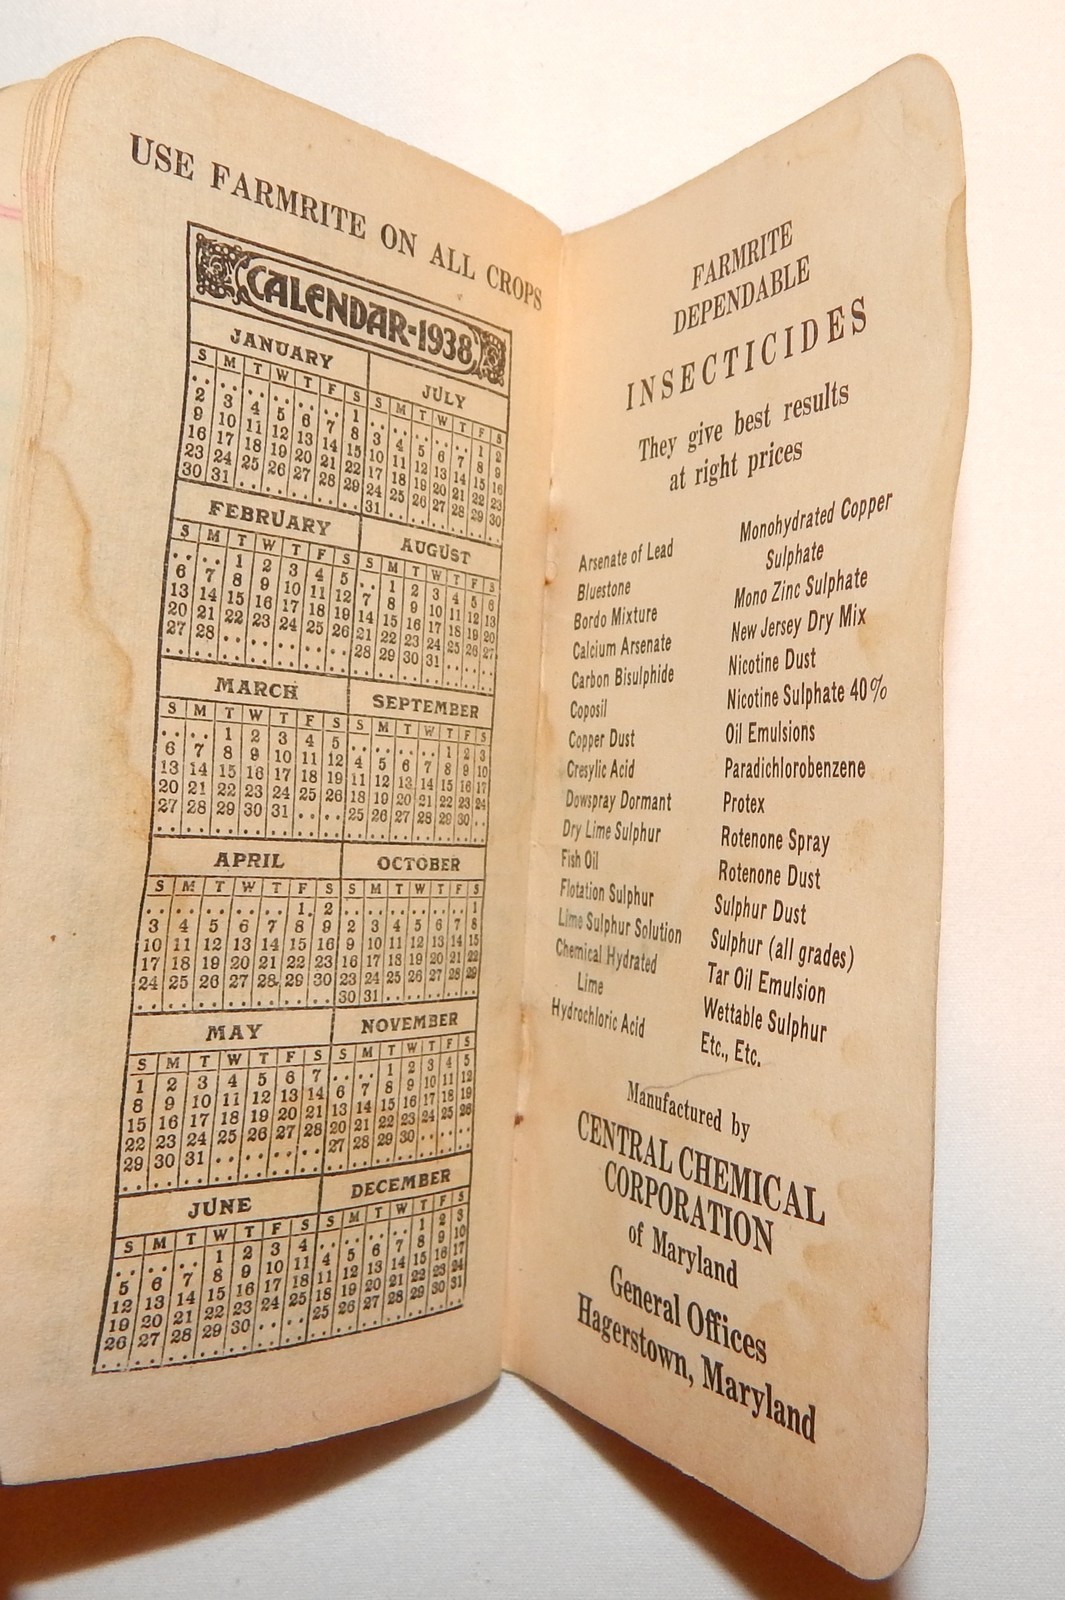 USE FARMRITE ON ALL CROPS
CALENDAR-1938
JANUARY
S M T W T F S
.. .. .. .. .. .. 1
2 3 4 5 6 7 8
9 10 11 12 13 14 15
16 17 18 19 20 21 22
23 24 25 26 27 28 29
30 31 .. .. .. .. ..
FEBRUARY
S M T W T F S
.. .. 1 2 3 4 5
6 7 8 9 10 11 12
13 14 15 16 17 18 19
20 21 22 23 24 25 26
27 28 .. .. .. .. ..
.. .. .. .. .. .. ..
MARCH
S M T W T F S
.. .. 1 2 3 4 5
6 7 8 9 10 11 12
13 14 15 16 17 18 19
20 21 22 23 24 25 26
27 28 29 30 31 .. ..
.. .. .. .. .. .. ..
APRIL
S M T W T F S
.. .. .. .. .. 1 2
3 4 5 6 7 8 9
10 11 12 13 14 15 16
17 18 19 20 21 22 23
24 25 26 27 28 29 30
.. .. .. .. .. .. ..
MAY
S M T W T F S
1 2 3 4 5 6 7
8 9 10 11 12 13 14
15 16 17 18 19 20 21
22 23 24 25 26 27 28
29 30 31 .. .. .. ..
.. .. .. .. .. .. ..
JUNE
S M T W T F S
.. .. .. 1 2 3 4
5 6 7 8 9 10 11
12 13 14 15 16 17 18
19 20 21 22 23 24 25
26 27 28 29 30 .. ..
.. .. .. .. .. .. ..
JULY
S M T W T F S
.. .. .. .. .. 1 2
3 4 5 6 7 8 9
10 11 12 13 14 15 16
17 18 19 20 21 22 23
24 25 26 27 28 29 30
31 .. .. .. .. .. ..
AUGUST
S M T W T F S
.. 1 2 3 4 5 6
7 8 9 10 11 12 13
14 15 16 17 18 19 20
21 22 23 24 25 26 27
28 29 30 31 .. .. ..
.. .. .. .. .. .. ..
SEPTEMBER
S M T W T F S
.. .. .. .. 1 2 3
4 5 6 7 8 9 10
11 12 13 14 15 16 17
18 19 20 21 22 23 24
25 26 27 28 29 30 ..
.. .. .. .. .. .. ..
OCTOBER
S M T W T F S
.. .. .. .. .. .. 1
2 3 4 5 6 7 8
9 10 11 12 13 14 15
16 17 18 19 20 21 22
23 24 25 26 27 28 29
30 31 .. .. .. .. ..
NOVEMBER
S M T W T F S
.. .. 1 2 3 4 5
6 7 8 9 10 11 12
13 14 15 16 17 18 19
20 21 22 23 24 25 26
27 28 29 30 .. .. ..
.. .. .. .. .. .. ..
DECEMBER
S M T W T F S
.. .. .. .. 1 2 3
4 5 6 7 8 9 10
11 12 13 14 15 16 17
18 19 20 21 22 23 24
25 26 27 28 29 30 31
FARMRITE
DEPENDABLE
INSECTICIDES
They give best results
at right prices
Arsenate of Lead
Bluestone
Bordo Mixture
Calcium Arsenate
Carbon Bisulphide
Coposil
Copper Dust
Cresylic Acid
Dowspray Dormant
Dry Lime Sulphur
Fish Oil
Flotation Sulphur
Lime Sulphur Solution
Chemical Hydrated
Lime
Hydrochloric Acid
Monohydrated Copper
Sulphate
Mono Zinc Sulphate
New Jersey Dry Mix
Nicotine Dust
Nicotine Sulphate 40%
Oil Emulsions
Paradichlorobenzene
Protex
Rotenone Spray
Rotenone Dust
Sulphur Dust
Sulphur (all grades)
Tar Oil Emulsion
Wettable Sulphur
Etc., Etc.
Manufactured by
CENTRAL CHEMICAL
CORPORATION
of Maryland
General Offices
Hagerstown, Maryland